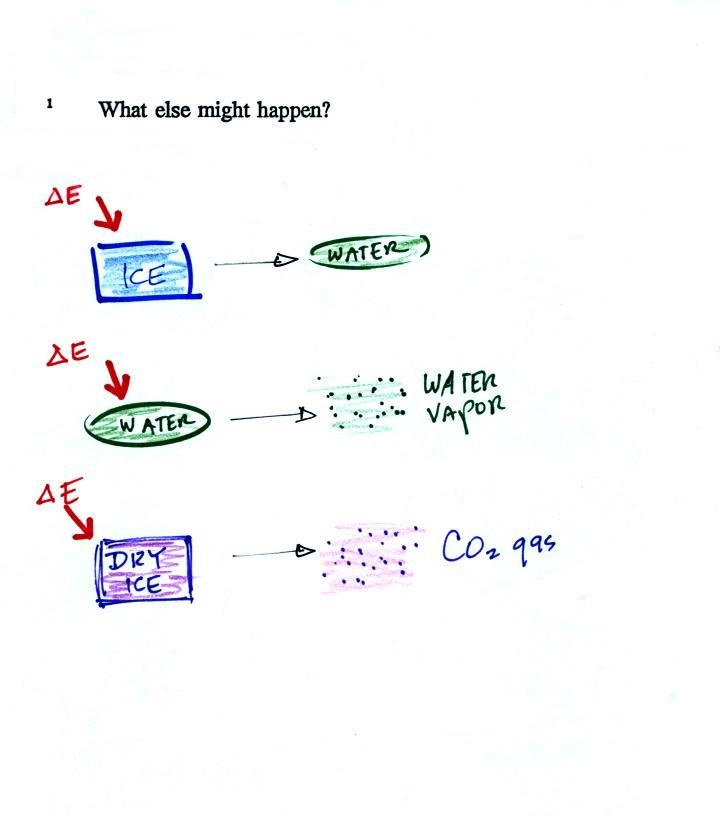 1 What else might happen?
ΔE
ICE
WATER
ΔE
WATER
WATER
VAPOR
ΔE
DRY
ICE
CO₂ gas